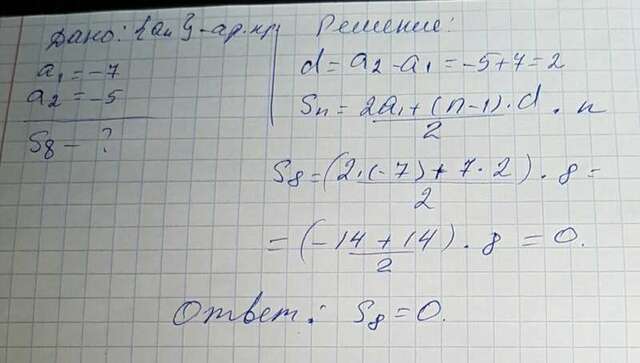 Дано: {aₙ} - ар.пр.
a₁ = -7
a₂ = -5
S₈ - ?
Решение:
d = a₂ - a₁ = -5 + 7 = 2
Sₙ = (2a₁ + (n-1)·d)/2 · n
S₈ = (2·(-7) + 7·2)/2 · 8 =
= (-14 + 14)/2 · 8 = 0.
Ответ: S₈ = 0.